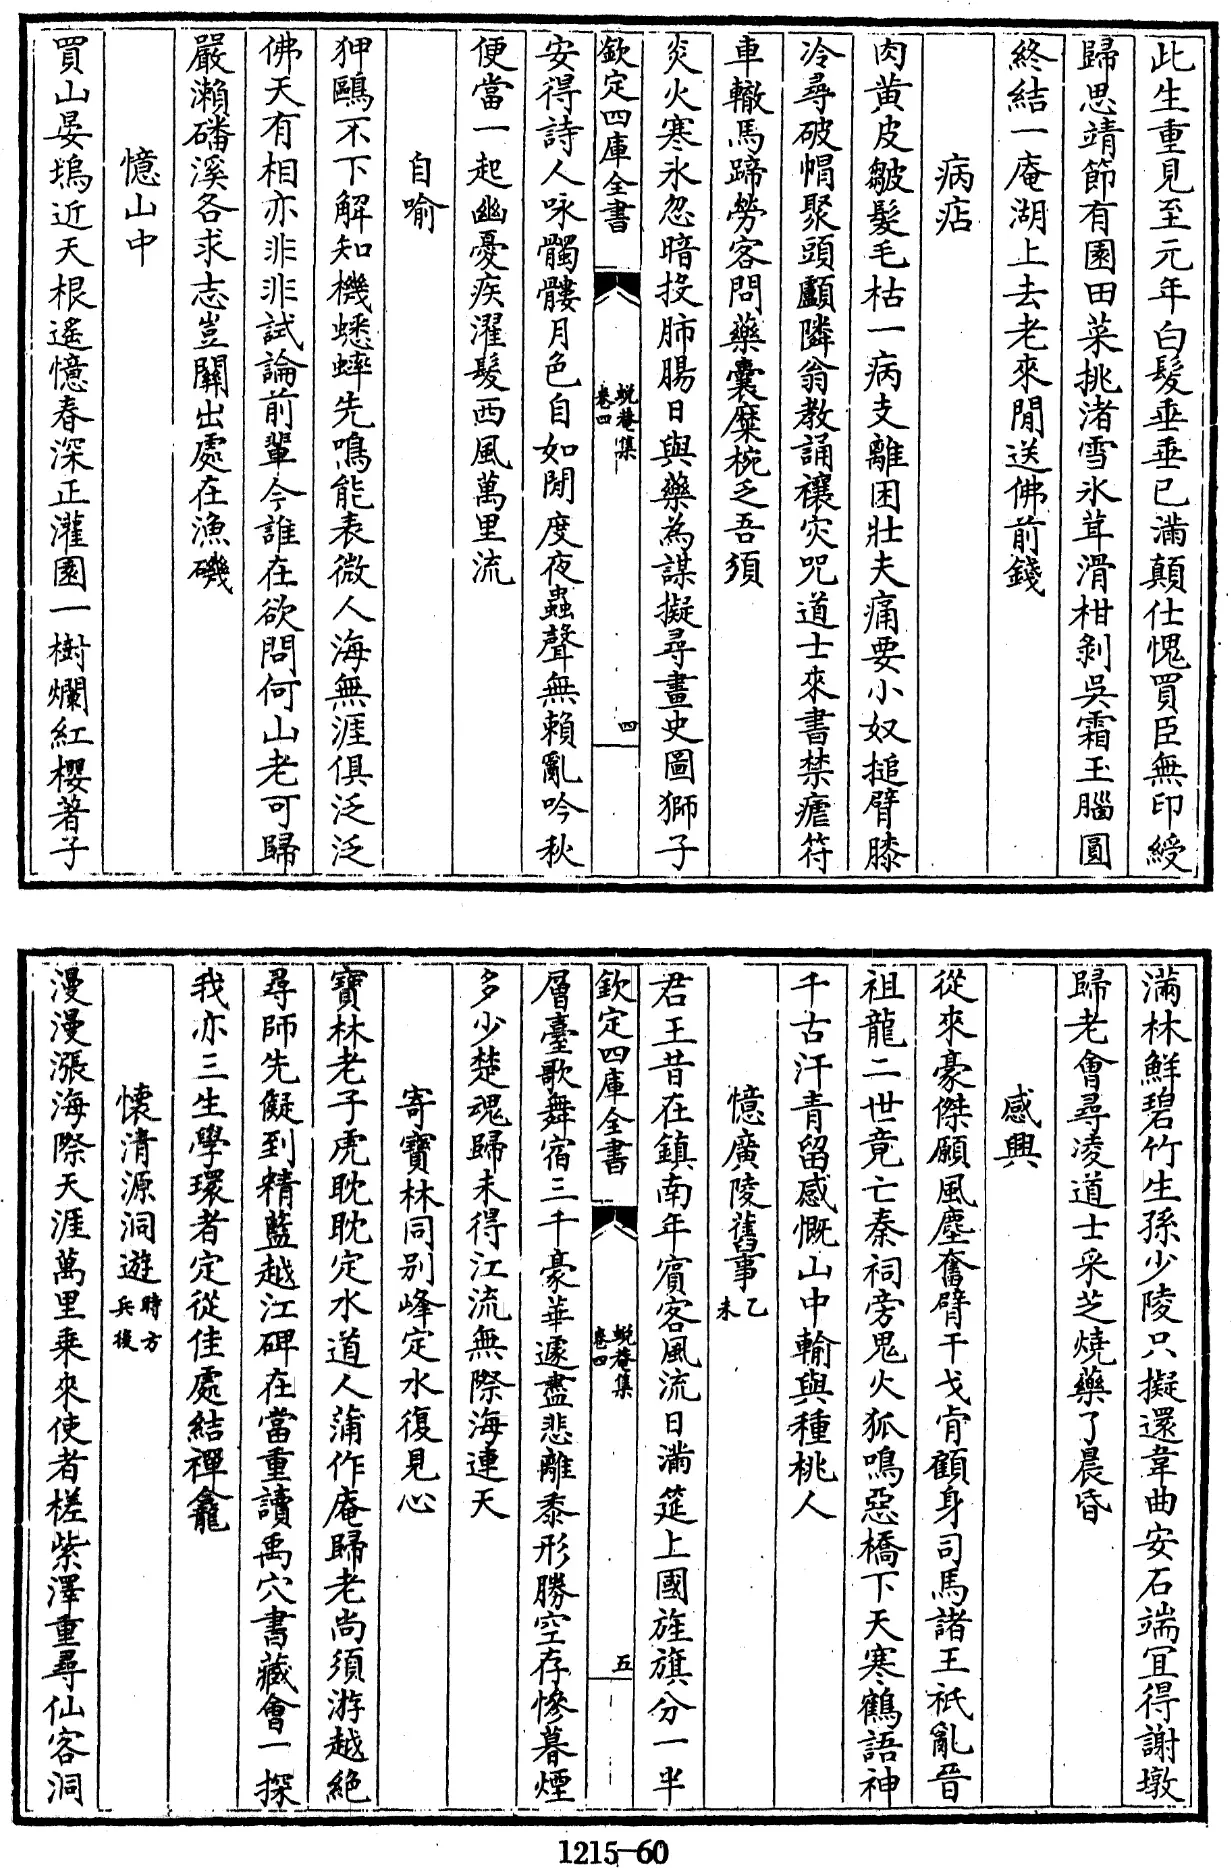 此生重見至元年白髮垂垂已滿顛仕愧買臣無印綬
歸思靖節有園田菜挑渚雪氷茸滑柑剝吳霜玉腦圓
終結一庵湖上去老來閒送佛前錢
病店
肉黄皮皺髮毛枯一病支離困壯夫痛要小奴搥臂膝
冷尋破帽聚頭顱隣翁教誦禳灾咒道士來書禁瘧符
車轍馬蹄勞客問藥囊糜椀乏吾須
炎火寒氷忽暗投肺腸日與藥為謀擬尋畫史圖獅子
欽定四庫全書
蛻菴集
卷四
四
安得詩人咏髑髏月色自如閒度夜蟲聲無賴亂吟秋
便當一起幽憂疾濯髮西風萬里流
自喻
狎鷗不下解知機蟋蟀先鳴能表微人海無涯俱泛泛
佛天有相亦非非試論前輩今誰在欲問何山老可歸
嚴瀨磻溪各求志豈關出處在漁磯
憶山中
買山晏塢近天根遥憶春深正灌園一樹爛紅櫻著子
滿林鮮碧竹生孫少陵只擬還韋曲安石端宜得謝墩
歸老會尋凌道士采芝燒藥了晨昏
感興
從來豪傑願風塵奮臂干戈肯顧身司馬諸王祇亂晉
祖龍二世竟亡秦祠旁鬼火狐鳴惡橋下天寒鶴語神
千古汗青留感慨山中輸與種桃人
憶廣陵舊事乙未
君王昔在鎮南年賓客風流日滿筵上國旌旗分一半
欽定四庫全書
蛻菴集
卷四
五
層臺歌舞宿三千豪華遽盡悲離黍形勝空存慘暮煙
多少楚魂歸未得江流無際海連天
寄寶林同别峰定水復見心
寶林老子虎耽耽定水道人蒲作庵歸老尚須游越絶
尋師先儗到精藍越江碑在當重讀禹穴書藏會一探
我亦三生學環者定從佳處結禪龕
懷清源洞遊時方兵後
漫漫漲海際天涯萬里乘來使者槎紫澤重尋仙客洞
1215-60